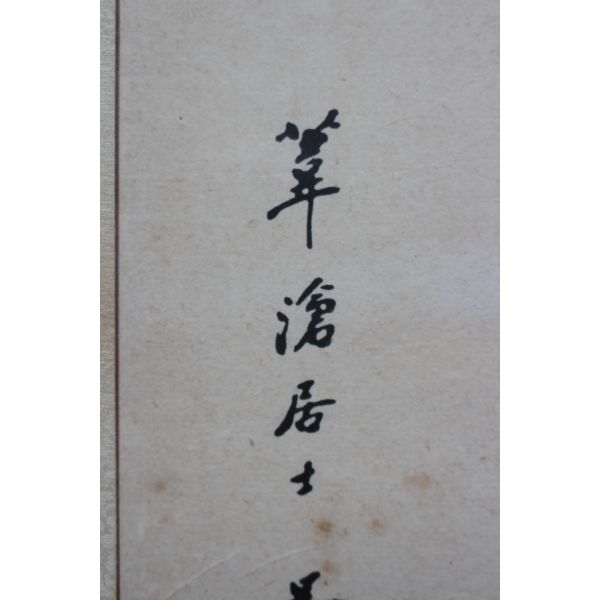 葦滄居士